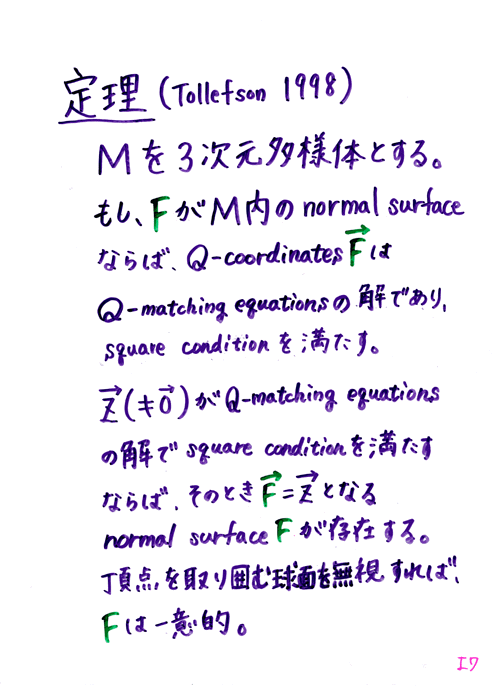 定理 (Tollefson 1998)
Mを3次元多様体とする。
もし、FがM内のnormal surface
ならば、Q-coordinates F⃗は
Q-matching equationsの解であり、
square conditionを満たす。
z⃗(≠0⃗)がQ-matching equations
の解でsquare conditionを満たす
ならば、そのときF⃗=z⃗となる
normal surface Fが存在する。
頂点を取り囲む球面を無視すれば、
Fは一意的。